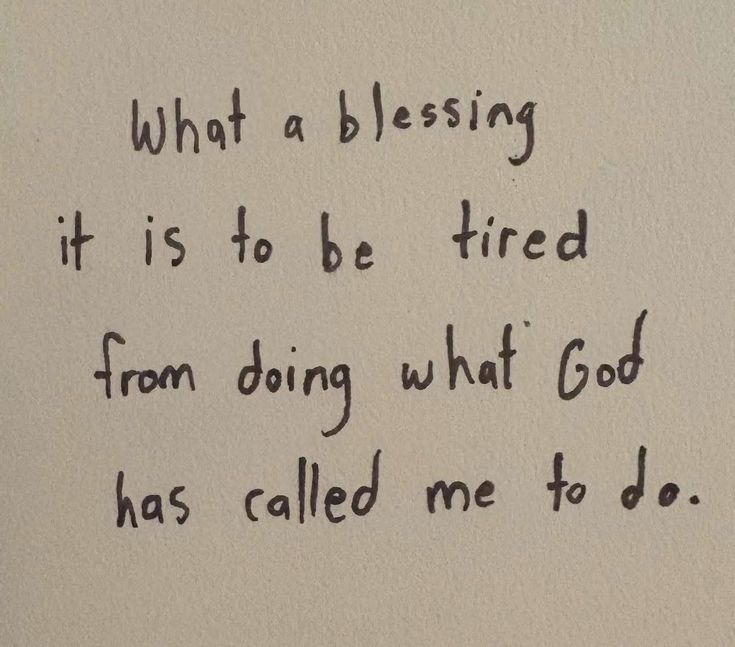 What a blessing
it is to be tired
from doing what God
has called me to do.